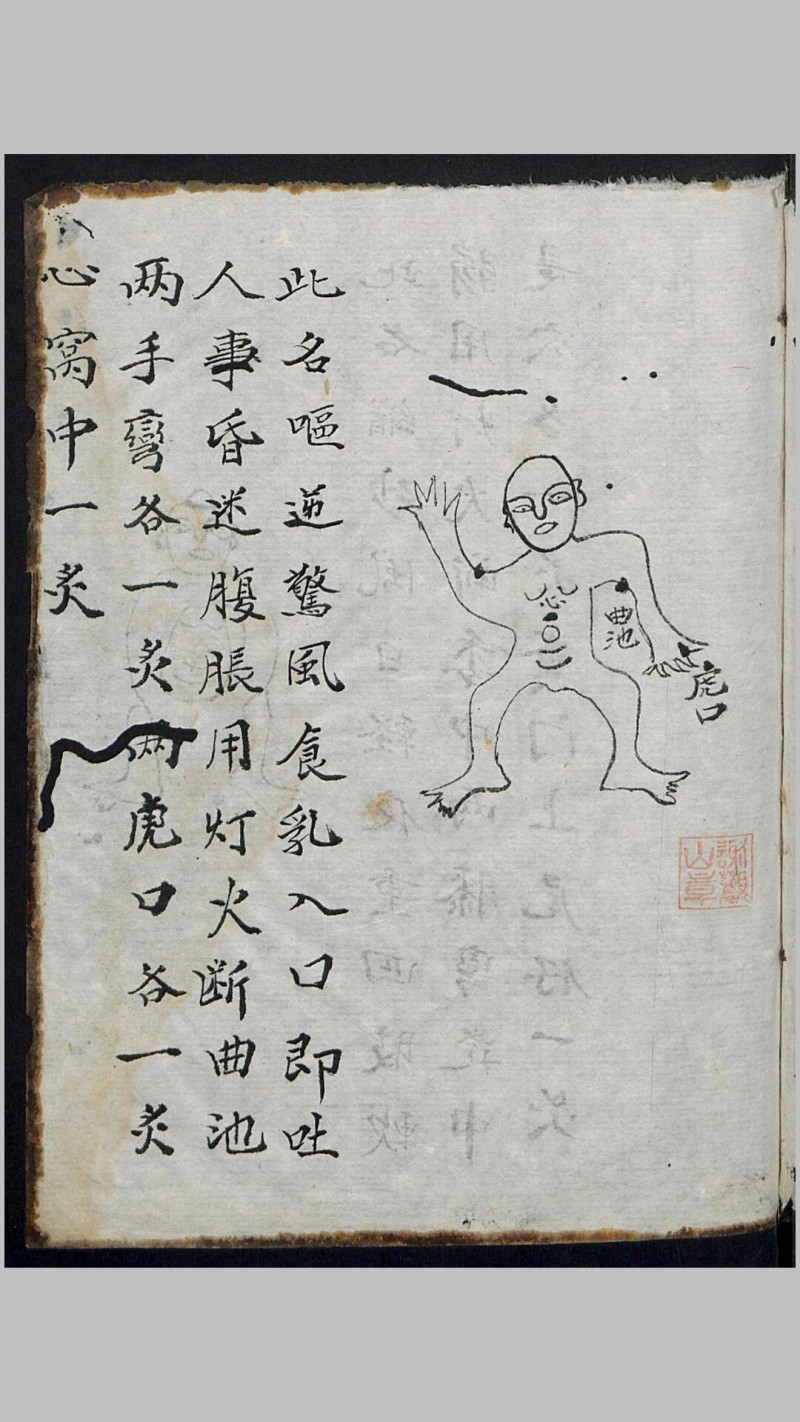 此名嘔逆驚風食乳入口即吐
人事昏迷腹脹用灯火断曲池
两手彎各一炙两虎口各一炙
心窝中一炙
心
曲池
虎口